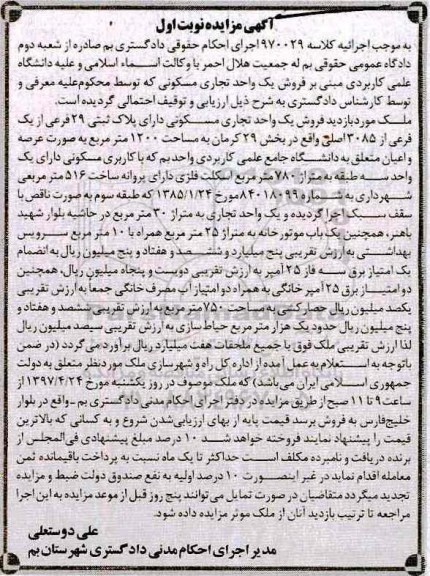 آگهی مزایده نوبت اول
به موجب اجرائیه کلاسه ۹۷۰۰۲۹ اجرای احکام حقوقی دادگستری بم صادره از شعبه دوم
دادگاه عمومی حقوقی بم له جمعیت هلال احمر با وکالت اسماء اسلامی و علیه دانشگاه
علمی کاربردی مبنی بر فروش یک واحد تجاری مسکونی که توسط محکوم‌علیه معرفی و
توسط کارشناس دادگستری به شرح ذیل ارزیابی و توقیف احتمالی گردیده است.
ملک مورد بازدید فروش یک واحد تجاری مسکونی دارای پلاک ثبتی ۲۹ فرعی از یک
فرعی از ۳۰۸۵ اصلی واقع در بخش ۲۹ کرمان به مساحت ۱۲۰۰ متر مربع به صورت عرصه
و اعیان متعلق به دانشگاه جامع علمی کاربردی واحد بم که با کاربری مسکونی دارای یک
واحد سه طبقه به متراژ ۷۸۰ متر مربع اسکلت فلزی دارای پروانه ساخت ۵۱۶ متر مربعی
شهرداری به شماره ۸۴۰۱۸۰۹۹ مورخ ۱۳۸۵/۱/۲۴ که طبقه سوم به صورت ناقص با
سقف سبک اجرا گردیده و یک واحد تجاری به متراژ ۳۰ متر مربع در حاشیه بلوار شهید
باهنر، همچنین یک باب موتورخانه به متراژ ۲۵ متر مربع همراه با ۱۰ متر مربع سرویس
بهداشتی به ارزش تقریبی پنج میلیارد و ششصد و هفتاد و پنج میلیون ریال به انضمام
یک امتیاز برق سه فاز ۲۵ آمپر به ارزش تقریبی دویست و پنجاه میلیون ریال، همچنین
دو امتیاز برق ۲۵ آمپر خانگی به همراه دو امتیاز آب مصرف خانگی جمعاً به ارزش تقریبی
یکصد میلیون ریال جدارکشی به مساحت ۷۵۰ متر مربع به ارزش تقریبی ششصد و هفتاد و
پنج میلیون ریال حدود یک هزار متر مربع حیاط‌سازی به ارزش تقریبی سیصد میلیون ریال
لذا ارزش تقریبی ملک فوق با جمیع ملحقات هفت میلیارد ریال برآورد می گردد (در ضمن
باتوجه به استعلام به عمل آمده از اداره کل راه و شهرسازی ملک مورد نظر متعلق به دولت
جمهوری اسلامی ایران می‌باشد) که ملک موصوف در روز یکشنبه مورخ ۱۳۹۷/۴/۲۴ از
ساعت ۹ تا ۱۱ صبح از طریق مزایده در دفتر اجرای احکام مدنی دادگستری بم ـ واقع در بلوار
خلیج‌فارس به فروش برسد قیمت پایه از بهای ارزیابی‌شدن شروع و به کسانی که بالاترین
قیمت را پیشنهاد نمایند فروخته خواهد شد ۱۰ درصد مبلغ پیشنهادی فی‌المجلس از
برنده دریافت و نامبرده مکلف است حداکثر تا یک ماه نسبت به پرداخت باقیمانده ثمن
معامله اقدام نماید در غیر اینصورت ۱۰ درصد اولیه به نفع صندوق دولت ضبط و مزایده
تجدید میگردد متقاضیان در صورت تمایل می‌توانند پنج روز قبل از موعد مزایده به این اجرا
مراجعه تا ترتیب بازدید آنان از ملک موثر مزایده داده شود.
علی دوستعلی
مدیر اجرای احکام مدنی دادگستری شهرستان بم